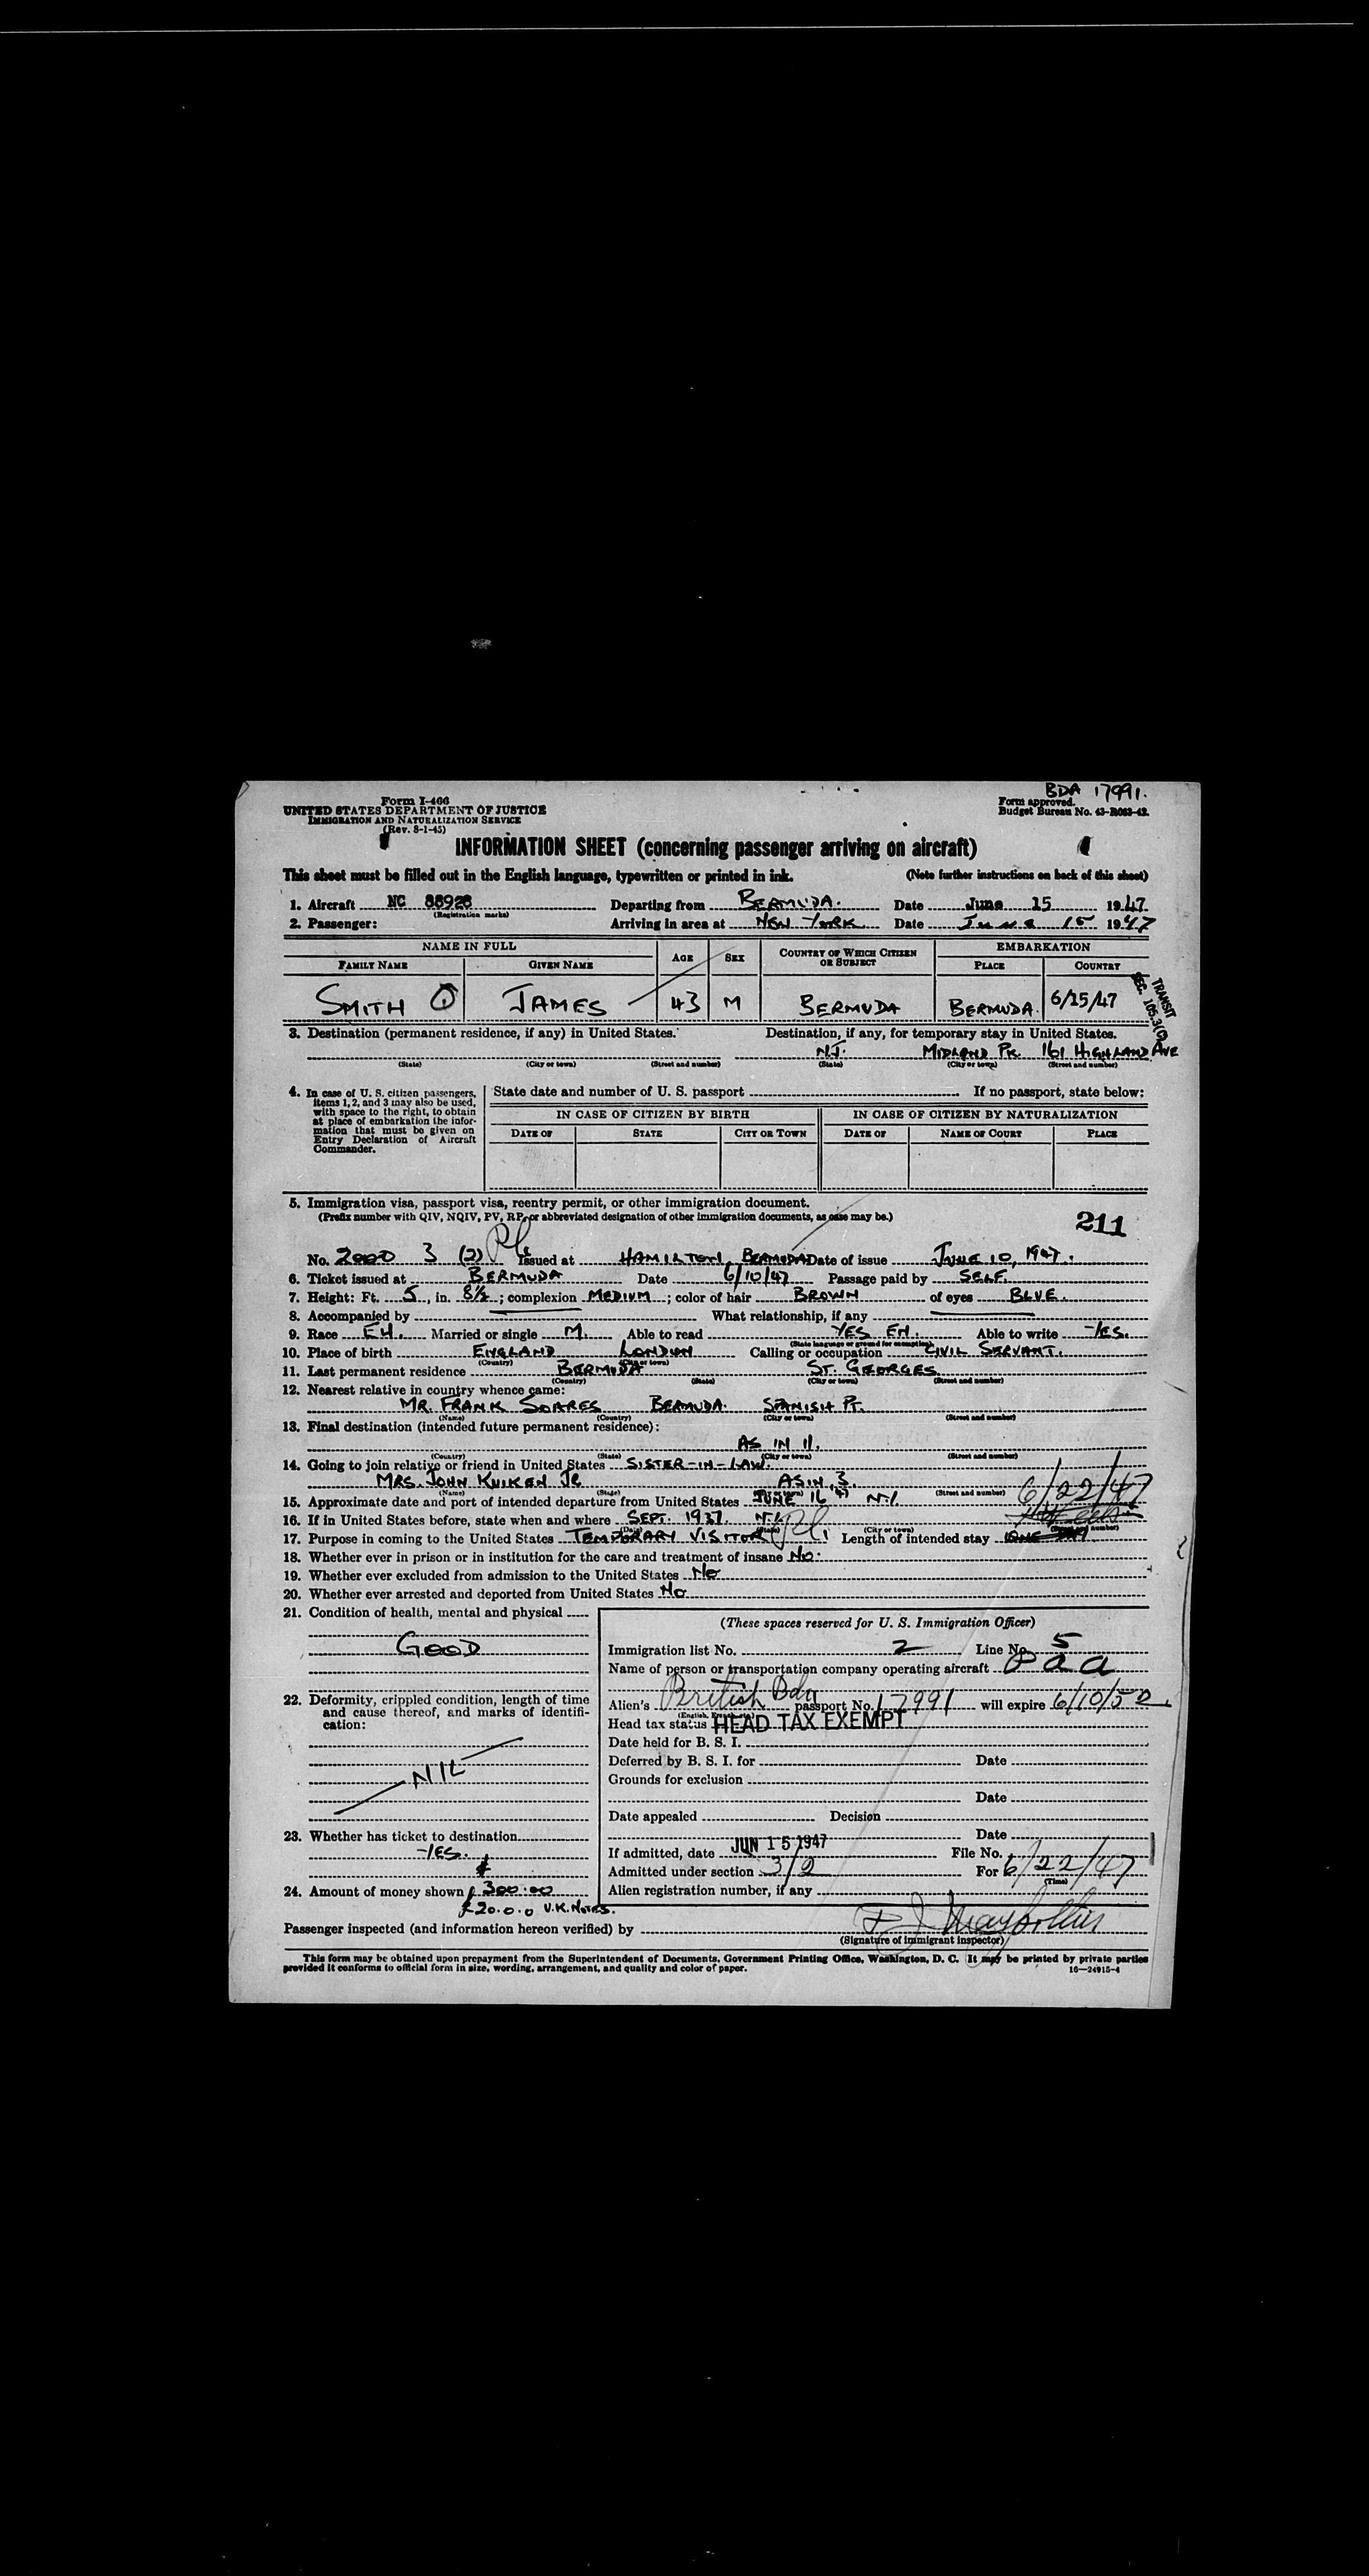 BDA 17991.
Form I-466
UNITED STATES DEPARTMENT OF JUSTICE
IMMIGRATION AND NATURALIZATION SERVICE
(Rev. 8-1-45)
Form approved.
Budget Bureau No. 43-R083-42.
INFORMATION SHEET (concerning passenger arriving on aircraft)
This sheet must be filled out in the English language, typewritten or printed in ink. (Note further instructions on back of this sheet)
1. Aircraft NC 88928 Departing from BERMUDA. Date June 15 1947
(Registration marks)
2. Passenger: Arriving in area at NEW YORK Date June 15 1947
NAME IN FULL AGE SEX COUNTRY OF WHICH CITIZEN OR SUBJECT EMBARKATION
FAMILY NAME GIVEN NAME PLACE COUNTRY
SMITH JAMES 43 M BERMUDA BERMUDA. 6/15/47
TRANSIT
SEC. 105.3(C)
3. Destination (permanent residence, if any) in United States. Destination, if any, for temporary stay in United States.
N.J. MIDLAND PK 161 HIGHLAND AVE
(State) (City or town) (Street and number) (State) (City or town) (Street and number)
4. In case of U. S. citizen passengers, items 1, 2, and 3 may also be used, with space to the right, to obtain at place of embarkation the information that must be given on Entry Declaration of Aircraft Commander.
State date and number of U. S. passport If no passport, state below:
IN CASE OF CITIZEN BY BIRTH IN CASE OF CITIZEN BY NATURALIZATION
DATE OF STATE CITY OR TOWN DATE OF NAME OF COURT PLACE
5. Immigration visa, passport visa, reentry permit, or other immigration document.
(Prefix number with QIV, NQIV, PV, RP, or abbreviated designation of other immigration documents, as case may be.)
211
No. 2000 3 (2) Issued at HAMILTON, BERMUDA Date of issue JUNE 10, 1947.
6. Ticket issued at BERMUDA Date 6/10/47 Passage paid by SELF
7. Height: Ft. 5, in. 8½; complexion MEDIUM; color of hair BROWN of eyes BLUE.
8. Accompanied by What relationship, if any
9. Race EH. Married or single M. Able to read YES EH. Able to write YES.
(State language or ground for exemption)
10. Place of birth ENGLAND LONDON Calling or occupation CIVIL SERVANT.
(Country) (City or town)
11. Last permanent residence BERMUDA ST. GEORGES
(Country) (State) (City or town) (Street and number)
12. Nearest relative in country whence came:
MR. FRANK SOARES BERMUDA. SPANISH PT.
(Name) (Country) (City or town) (Street and number)
13. Final destination (intended future permanent residence):
AS IN 11.
(Country) (State) (City or town) (Street and number)
14. Going to join relative or friend in United States SISTER-IN-LAW.
MRS. JOHN KUIKEN JR AS IN 3.
(Name) (State) (City or town) (Street and number)
15. Approximate date and port of intended departure from United States JUNE 16 47 N.Y. 6/22/47
16. If in United States before, state when and where SEPT. 1937 N.Y.
(Date) (State) (City or town) (Street and number)
17. Purpose in coming to the United States TEMPORARY VISITOR Length of intended stay ONE DAY
18. Whether ever in prison or in institution for the care and treatment of insane NO.
19. Whether ever excluded from admission to the United States NO
20. Whether ever arrested and deported from United States NO
21. Condition of health, mental and physical
GOOD
22. Deformity, crippled condition, length of time and cause thereof, and marks of identification:
NIL
23. Whether has ticket to destination
YES.
24. Amount of money shown $ 300.00
£20.0.0 U.K. NOTES.
(These spaces reserved for U. S. Immigration Officer)
Immigration list No. 2 Line No. 5
Name of person or transportation company operating aircraft P a a
Alien's British Bda passport No. 17991 will expire 6/10/50
Head tax status HEAD TAX EXEMPT
Date held for B. S. I.
Deferred by B. S. I. for Date
Grounds for exclusion
Date
Date appealed Decision
Date
If admitted, date JUN 15 1947 File No.
Admitted under section 3/2 For 6/22/47
(Time)
Alien registration number, if any
Passenger inspected (and information hereon verified) by
(Signature of immigrant inspector)
This form may be obtained upon prepayment from the Superintendent of Documents, Government Printing Office, Washington, D. C. It may be printed by private parties
provided it conforms to official form in size, wording, arrangement, and quality and color of paper. 16—24915-4